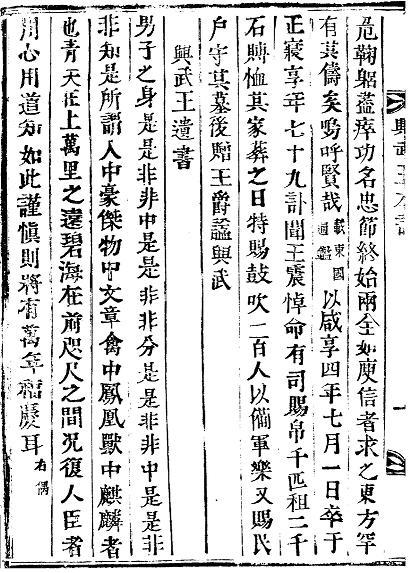 危鞠躬盡瘁功名忠節終始兩全如庾信者求之東方罕
有其儔矣嗚呼賢哉載東國通鑑以咸享四年七月一日卒于
正寢享年七十九訃聞王震悼命有司賜帛千匹租二千
石賻恤其家葬之日特賜鼓吹一百人以備軍樂又賜民
户守其墓後贈王爵諡興武
興武王遺書
男子之身是是非非中是非非分是是非非中是是非
非知是所謂人中豪傑物中文章禽中鳳凰獸中麒麟者
也青天在上萬里之遠碧海在前咫尺之間况復人臣者
用心用道知如此謹愼則將有萬年福慶耳右偶
興武王